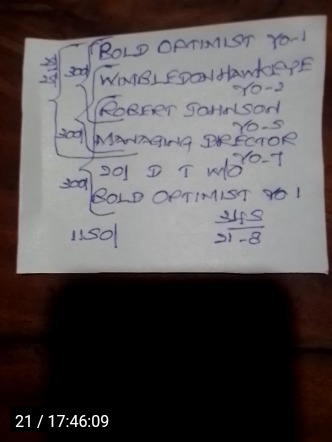 BOLD OPTIMIST 70-1
WIMBLEDON HAWKEYE
70-2
ROBERT JOHNSON
70-5
MANAGING DIRECTOR
70-7
201 D T W/O
BOLD OPTIMIST 70 1
1150/
21-8
21 / 17:46:09